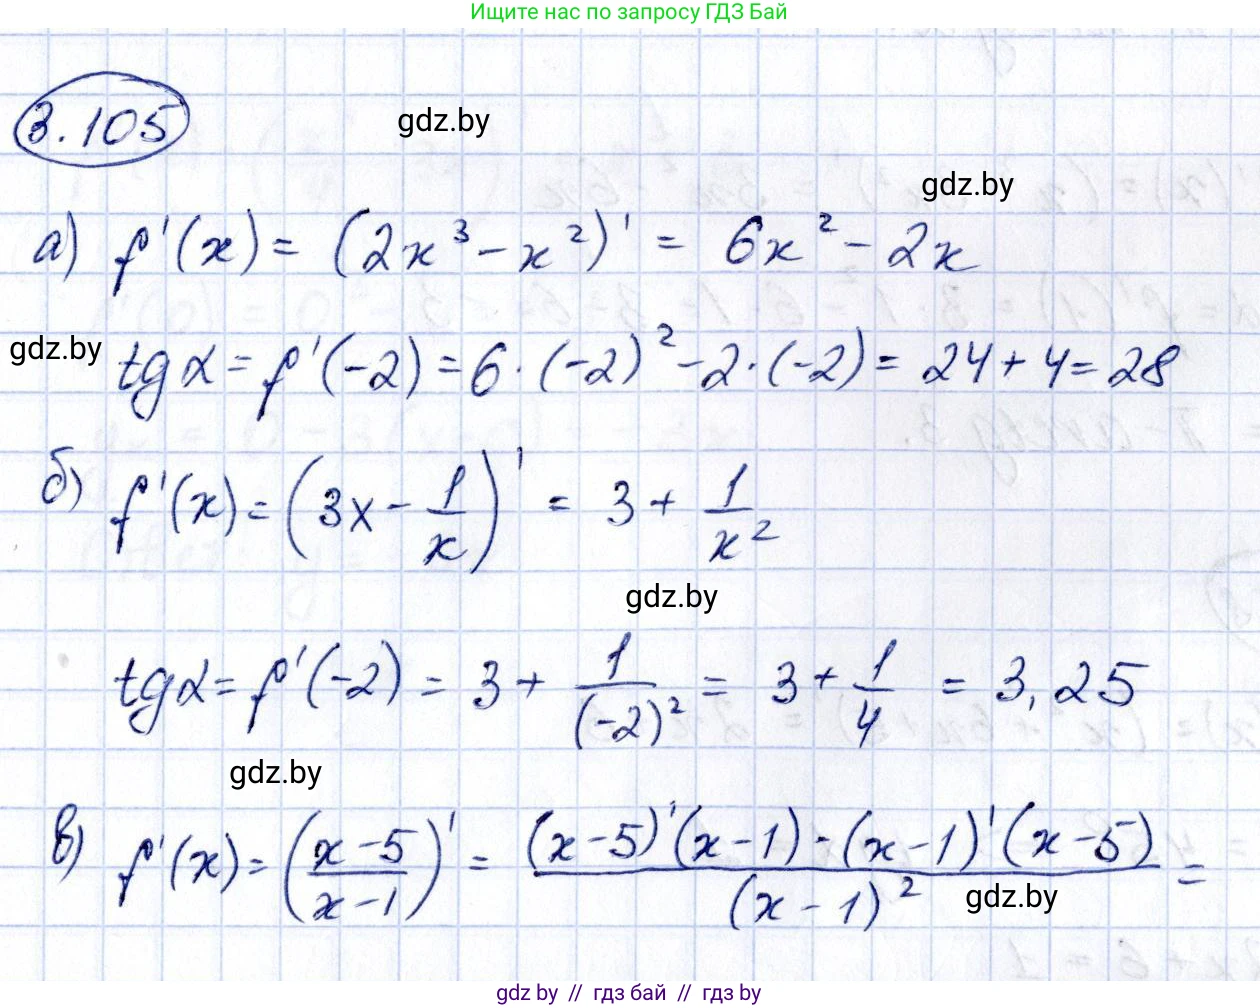 Ищите нас по запросу ГДЗ Бай
3.105
gdz.by
gdz.by
а) f'(x) = (2x³ - x²)' = 6x² - 2x
gdz.by
tg α = f'(-2) = 6 · (-2)² - 2 · (-2) = 24 + 4 = 28
б) f'(x) = (3x - 1/x)' = 3 + 1/x²
gdz.by
tg α = f'(-2) = 3 + 1/(-2)² = 3 + 1/4 = 3,25
gdz.by
в) f'(x) = ((x-5)/(x-1))' = ((x-5)'(x-1) - (x-1)'(x-5))/(x-1)² =
gdz.by
gdz by // гдз бай // гдз by